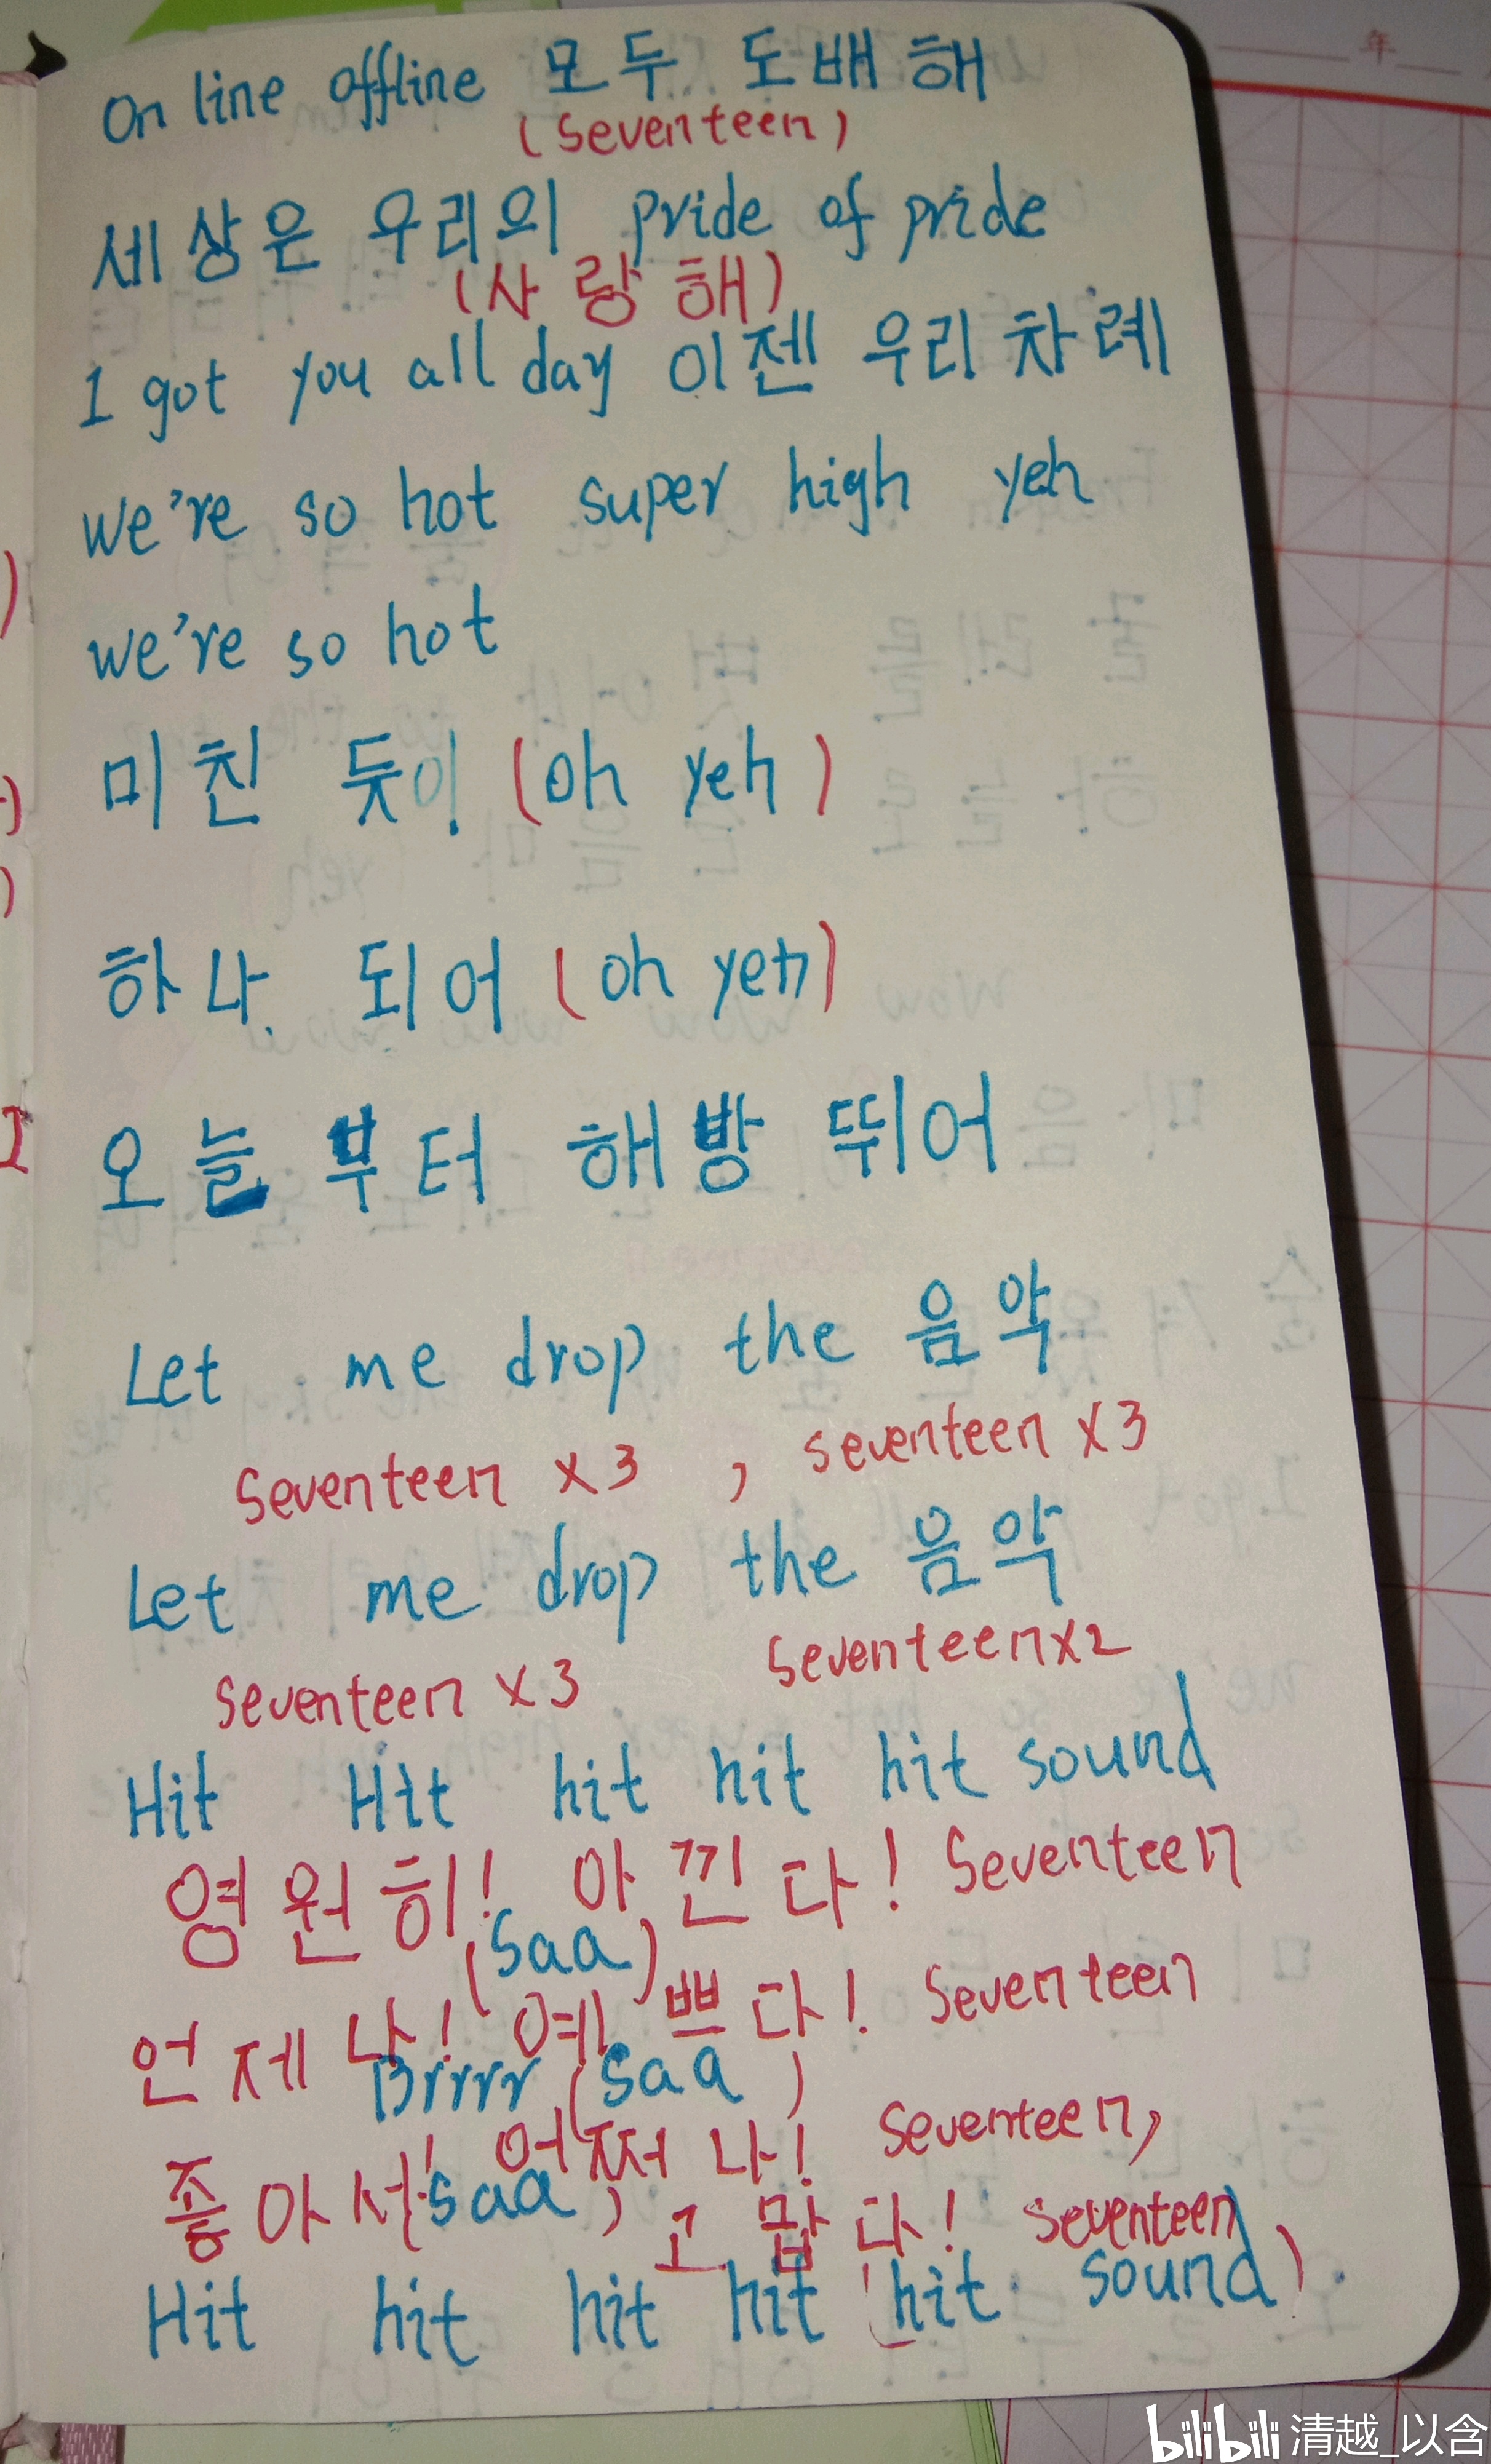 On line offline 모두 도배해
(Seventeen)
세상은 우리의 pride of pride
(사랑해)
I got you all day 이젠 우리 차례
we're so hot super high yeh
we're so hot
미친 듯이 (oh yeh)
하나 되어 (oh yeh)
오늘부터 해방 뛰어
Let me drop the 음악
Seventeen x3 , seventeen x3
Let me drop the 음악
seventeen x3 seventeen x2
Hit Hit hit hit hit sound
영원히! 아낀다! Seventeen
(saa)
언제나! 예쁘다! Seventeen
Brrrr (saa)
좋아서! 어쩌나! Seventeen,
saa, 고맙다! seventeen
Hit hit hit hit (hit sound).
年
bilibili 清越_以含